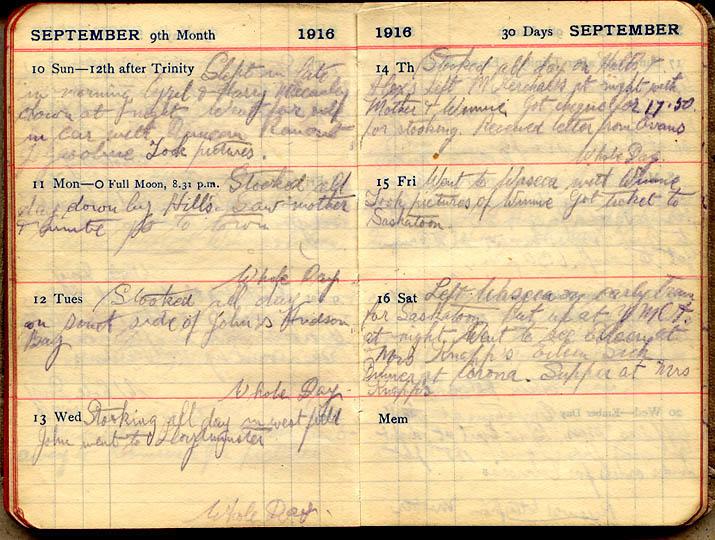 SEPTEMBER 9th Month 1916
10 Sun—12th after Trinity Slept in late
in morning
down at night
in car with
Gasoline Took pictures.
11 Mon—O Full Moon, 8.31 p.m. Stooked all
day down by Hill's. Saw mother
go to town
Whole Day
12 Tues Stooked all day
on south side of John's Hudson
Bay
Whole Day
13 Wed Stooking all day in west field
John went to Lloydminster
Whole Day.
1916 30 Days SEPTEMBER
14 Th Stooked all day on
Left at night with
Mother & Winnie Got cheque for 17.50
for stooking. Received letter from Evans
Whole Day.
15 Fri Went to Waseca with Winnie
Took pictures of Winnie Got ticket to
Saskatoon
16 Sat Left Waseca on early Train
for Saskatoon Put up at Y.M.C.A.
at night. Went to see Eileen at
Mrs Knapp's Eileen Sick
Dinner at Corona. Supper at Mrs
Knapp's
Mem